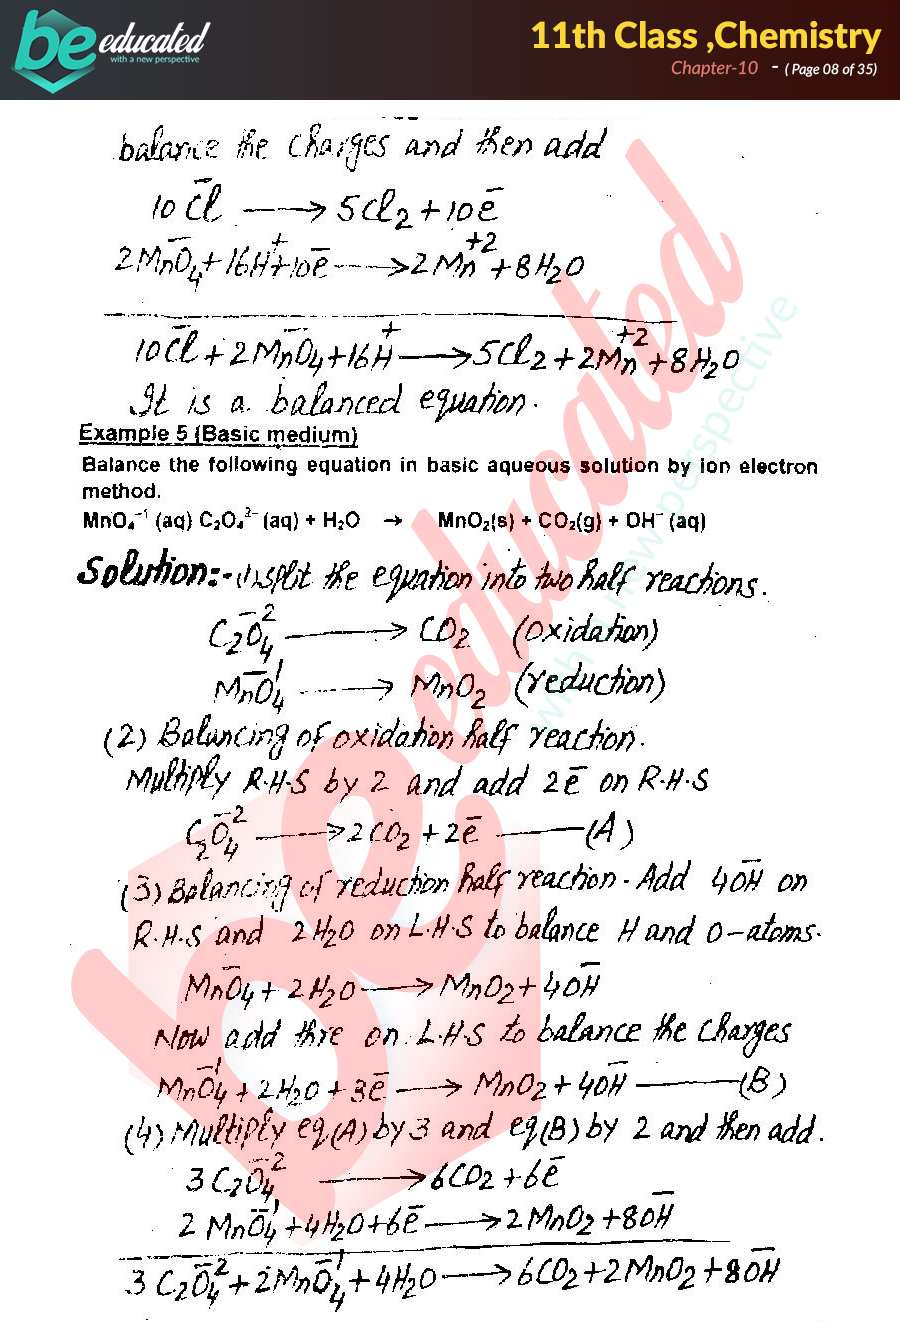 be educated
with a new perspective
11th Class ,Chemistry
Chapter-10 - ( Page 08 of 35)
balance the charges and then add
10Cl⁻ → 5Cl₂ + 10e⁻
2MnO₄⁻ + 16H⁺ + 10e⁻ → 2Mn⁺² + 8H₂O
10Cl⁻ + 2MnO₄⁻ + 16H⁺ → 5Cl₂ + 2Mn⁺² + 8H₂O
It is a balanced equation.
Example 5 (Basic medium)
Balance the following equation in basic aqueous solution by ion electron
method.
MnO₄⁻¹ (aq) C₂O₄²⁻ (aq) + H₂O → MnO₂(s) + CO₂(g) + OH⁻ (aq)
Solution:- (1) split the equation into two half reactions.
C₂O₄⁻² → CO₂ (oxidation)
MnO₄⁻¹ → MnO₂ (reduction)
(2) Balancing of oxidation half reaction.
Multiply R.H.S by 2 and add 2e⁻ on R.H.S
C₂O₄⁻² → 2CO₂ + 2e⁻ —— (A)
(3) Balancing of reduction half reaction. Add 4OH⁻ on
R.H.S and 2H₂O on L.H.S to balance H and O-atoms.
MnO₄⁻ + 2H₂O → MnO₂ + 4OH⁻
Now add thre on L.H.S to balance the charges
MnO₄⁻¹ + 2H₂O + 3e⁻ → MnO₂ + 4OH⁻ —— (B)
(4) Multiply eq(A) by 3 and eq(B) by 2 and then add.
3C₂O₄⁻² → 6CO₂ + 6e⁻
2MnO₄⁻¹ + 4H₂O + 6e⁻ → 2MnO₂ + 8OH⁻
3C₂O₄⁻² + 2MnO₄⁻¹ + 4H₂O → 6CO₂ + 2MnO₂ + 8OH⁻
be educated
with a new perspective